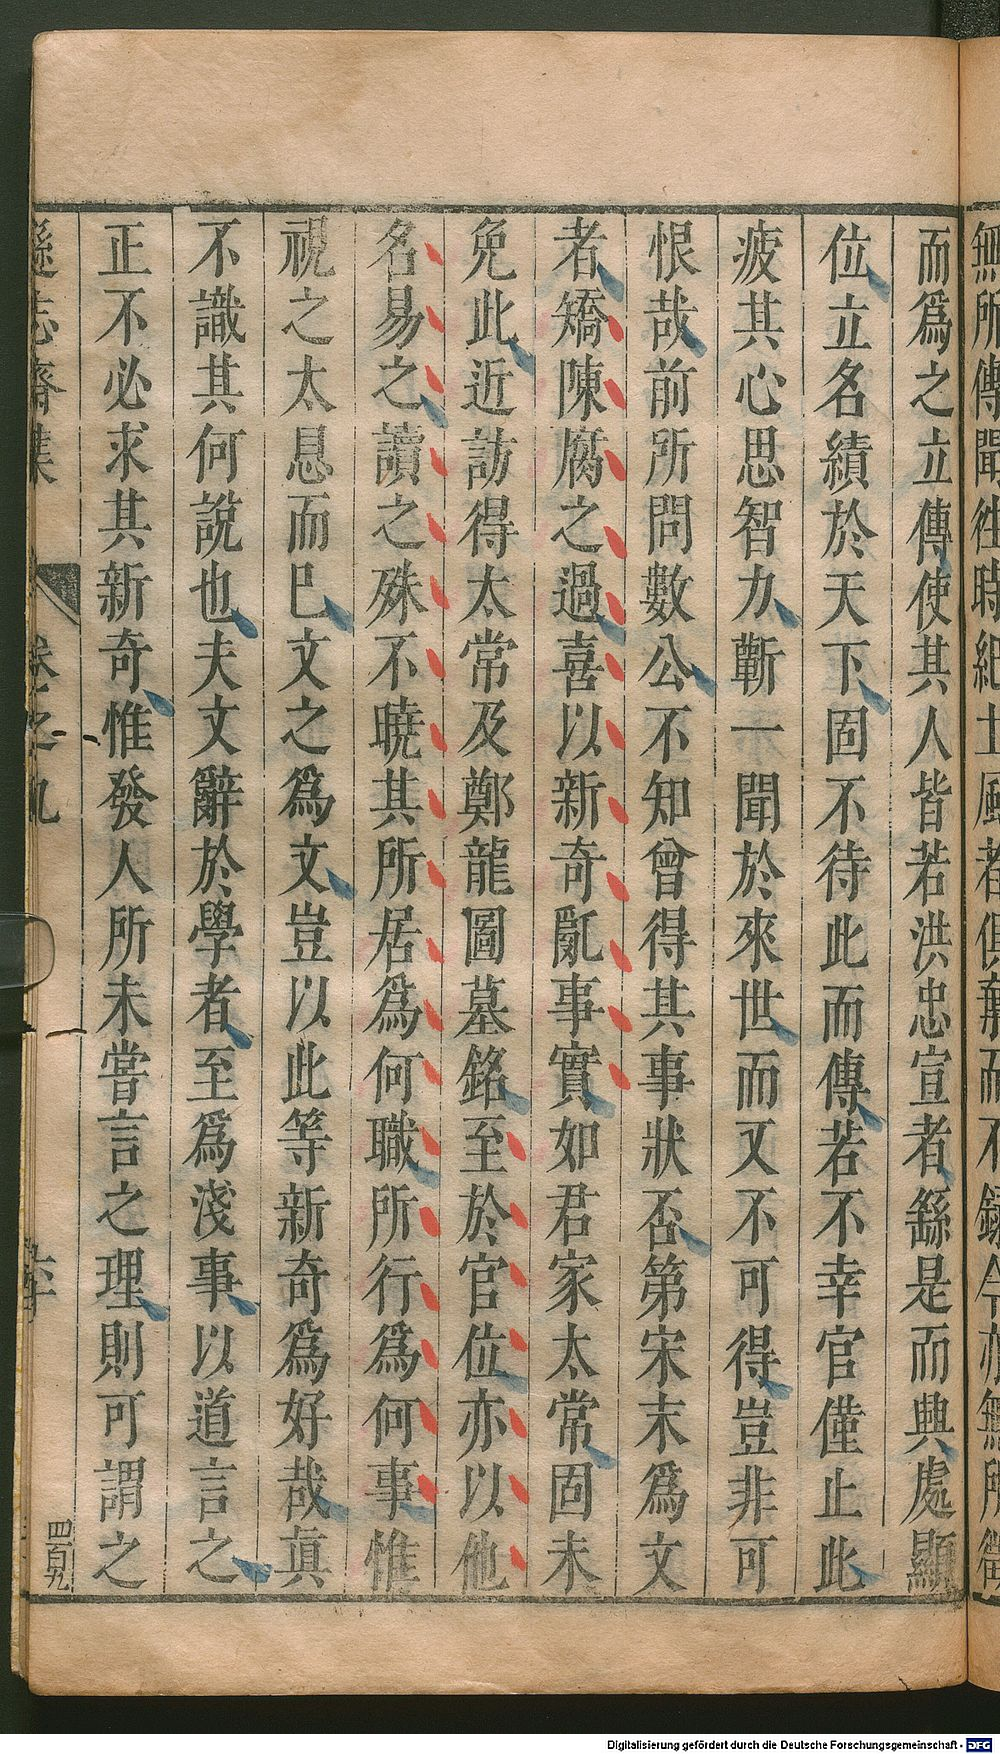 無所傳聞徃時紀士風者俱棄而不録今亦無所徴
而爲之立傳使其人皆若洪忠宣者繇是而興處顯
位立名績於天下固不待此而傳若不幸官僅止此
疲其心思智力蘄一聞於來世而又不可得豈非可
恨哉前所問數公不知曾得其事狀否第宋末爲文
者矯陳腐之過喜以新奇亂事實如君家太常固未
免此近訪得太常及鄭龍圖墓銘至於官位亦以他
名易之讀之殊不曉其所居爲何職所行爲何事惟
視之太息而巳文之爲文豈以此等新奇爲好哉真
不識其何說也夫文辭於學者至爲淺事以道言之
正不必求其新奇惟發人所未嘗言之理則可謂之
遜志齋集 卷之九
四百九
Digitalisierung gefördert durch die Deutsche Forschungsgemeinschaft - DFG